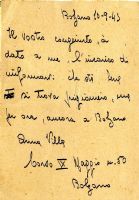 Bolzano 10-9-43
Il vostro congiunto, à
dato a me, l'incarico di
informarvi che egli
si trova prigioniero, ma
per ora, ancora a Bolzano
Anna Villa
Corso IX Maggio n. 50
Bolzano